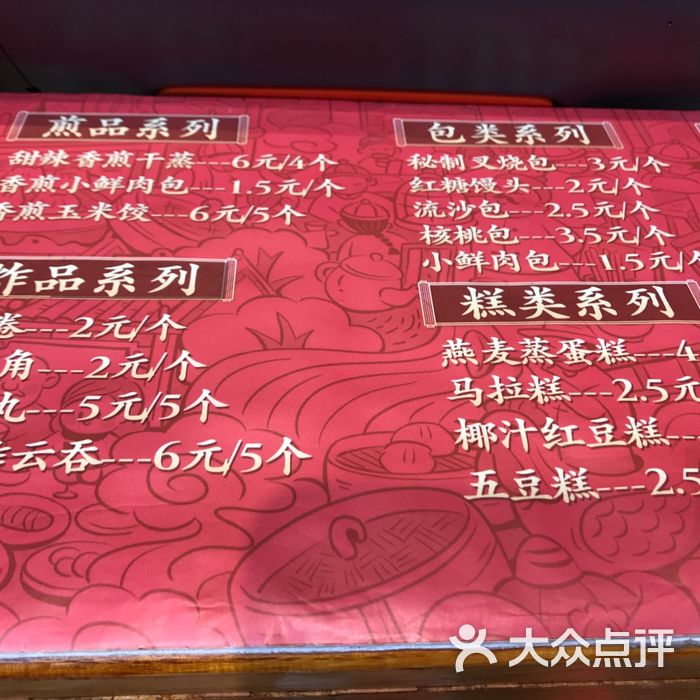 煎品系列
甜辣香煎干蒸---6元/4个
香煎小鲜肉包---1.5元/个
香煎玉米饺---6元/5个
炸品系列
卷---2元/个
角---2元/个
丸---5元/5个
云吞---6元/5个
包类系列
秘制叉烧包---3元/个
红糖馒头---2元/个
流沙包---2.5元/个
核桃包---3.5元/个
小鲜肉包---1.5元/个
糕类系列
燕麦蒸蛋糕---4
马拉糕---2.5元
椰汁红豆糕---
五豆糕---2.5
大众点评